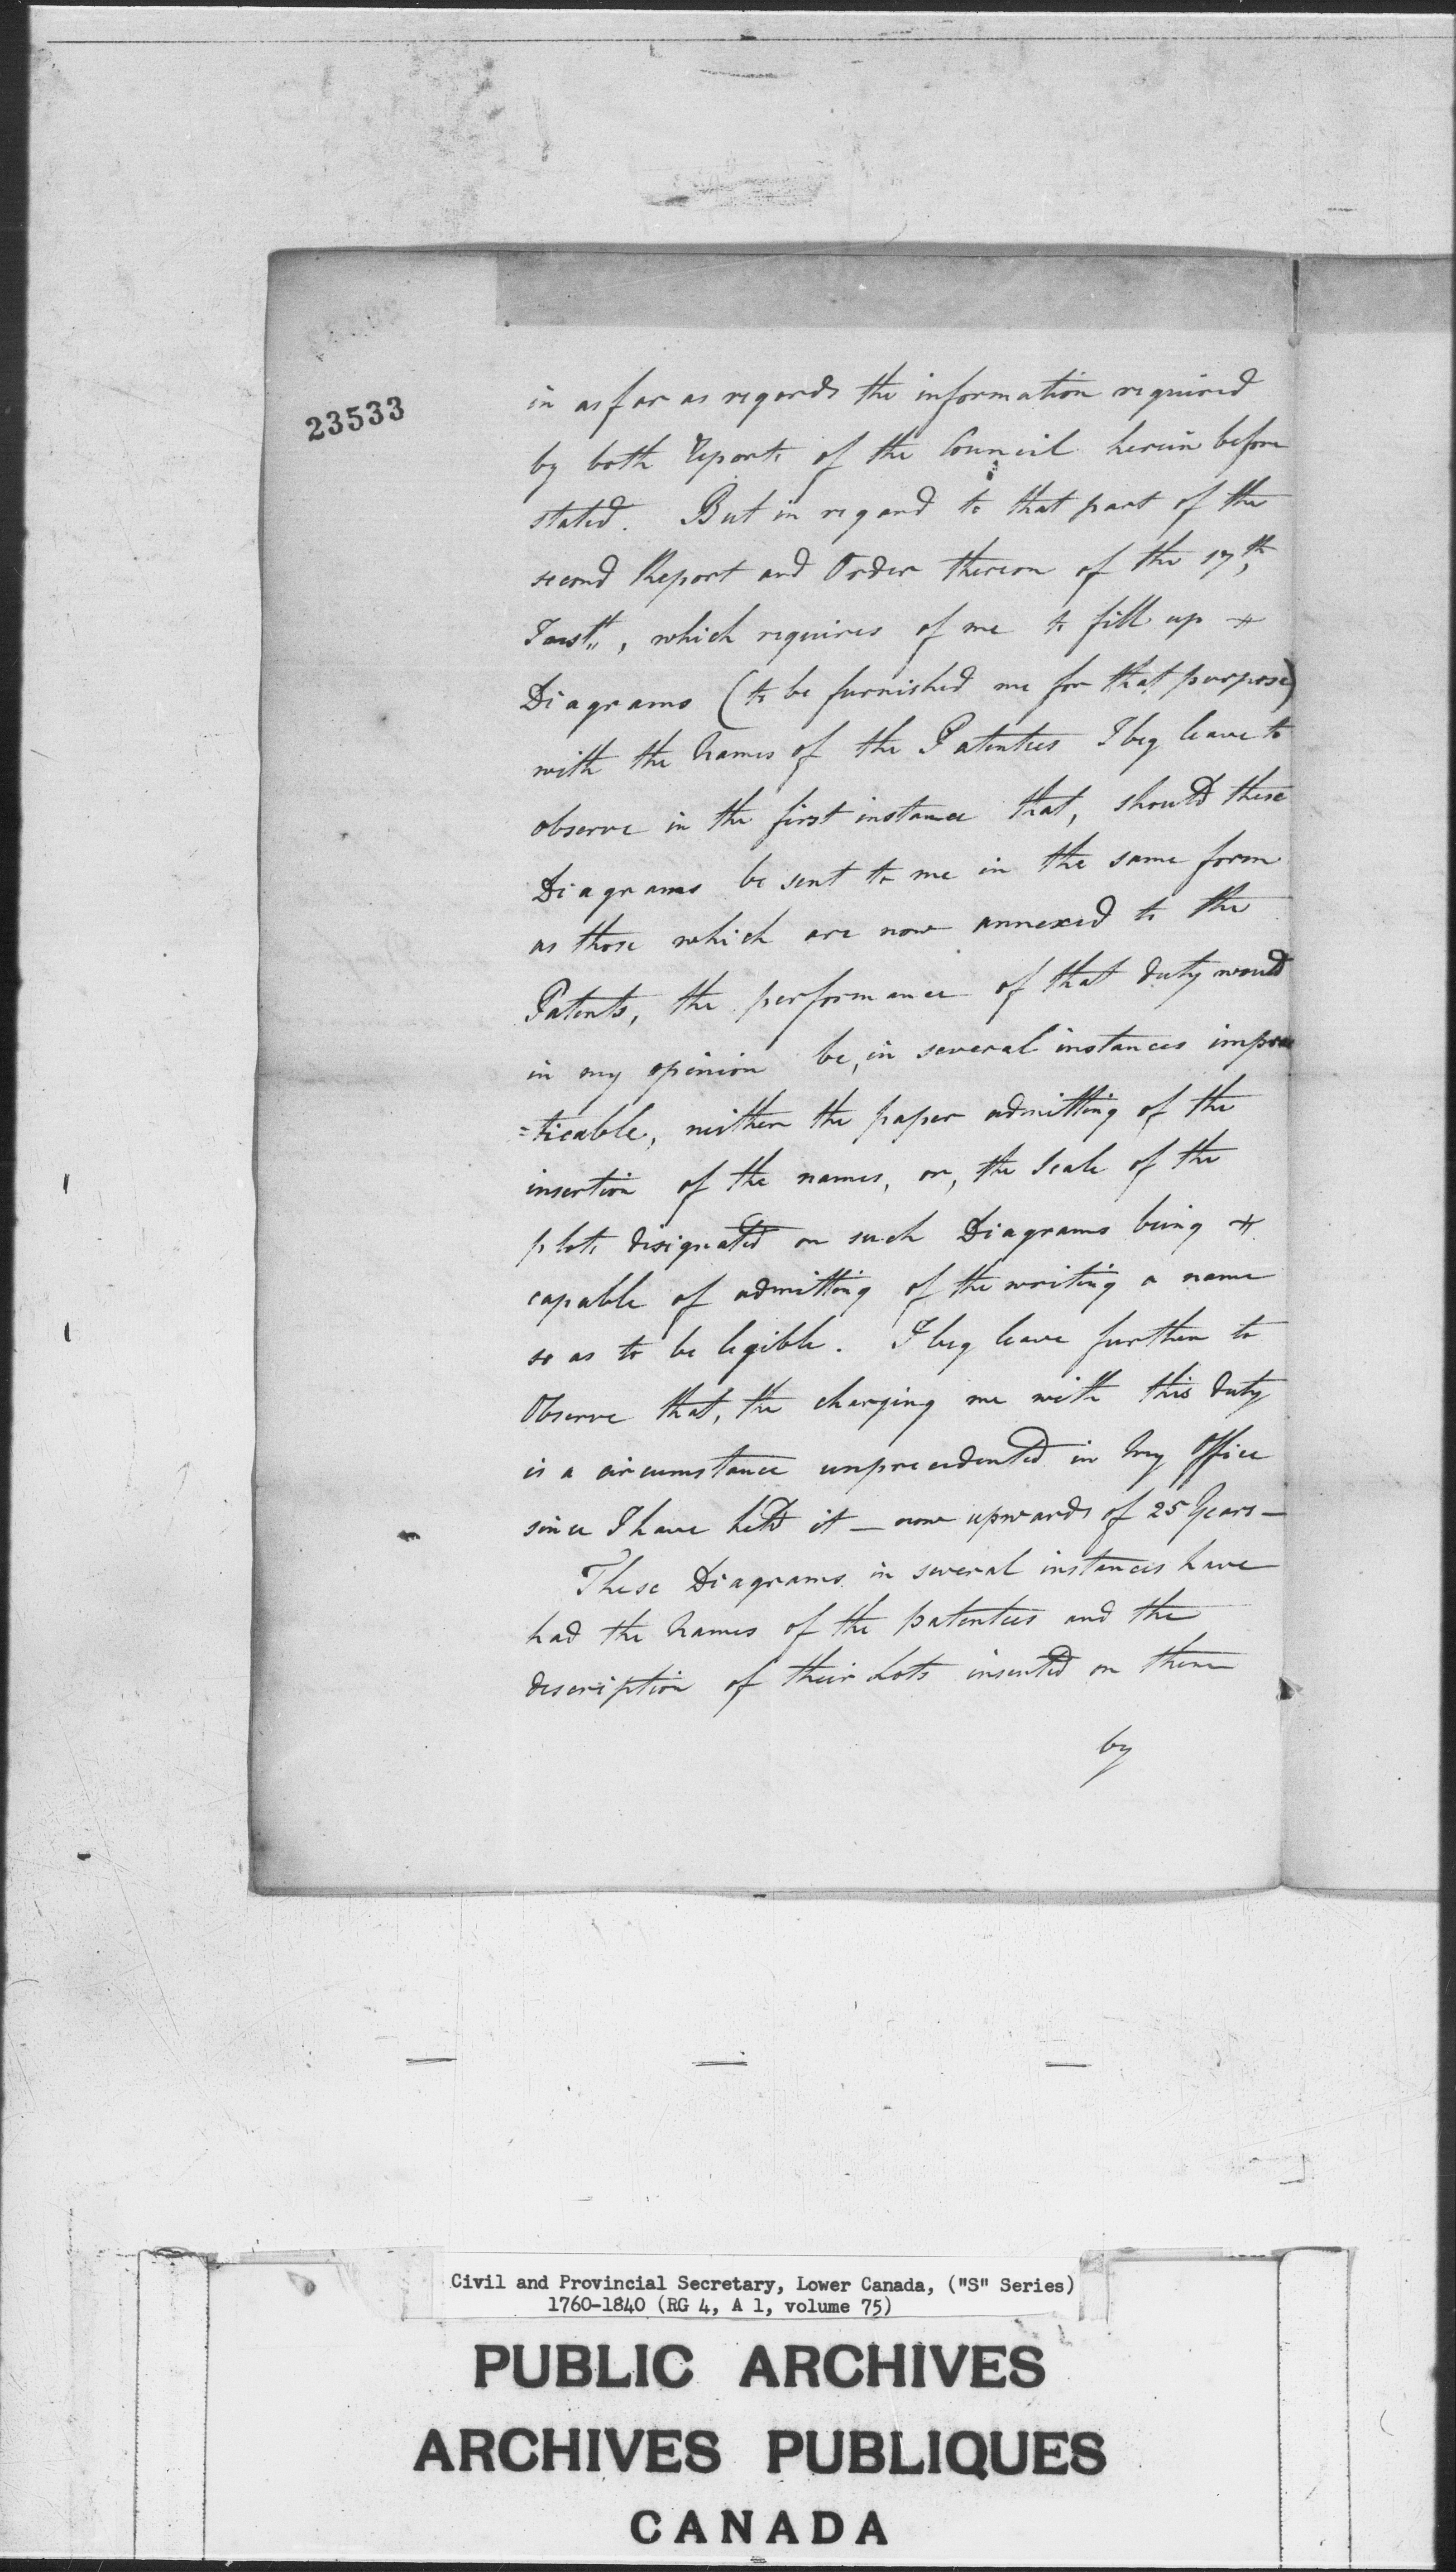 23533
in as far as regards the information required
by both Reports of the Council herein before
stated. But in regard to that part of the
second Report and Order thereon of the 17th,
Inst", which requires of me to fill up
Diagrams (to be furnished me for that purpose)
with the Names of the Patentees I beg leave to
observe in the first instance that, should these
Diagrams be sent to me in the same form
as those which are now annexed to the
Patents, the performance of that duty would
in my opinion be, in several instances imprac
=ticable, neither the paper admitting of the
insertion of the names, or, the Scale of the
plots designated on such Diagrams being
capable of admitting of the writing a name
so as to be legible. I beg leave further to
Observe that, the charging me with this duty
is a circumstance unprecedented in my Office
since I have held it — now upwards of 25 Years —
These Diagrams in several instances have
had the Names of the patentees and the
description of their Lots inserted on them
by
Civil and Provincial Secretary, Lower Canada, ("S" Series)
1760-1840 (RG 4, A 1, volume 75)
PUBLIC ARCHIVES
ARCHIVES PUBLIQUES
CANADA